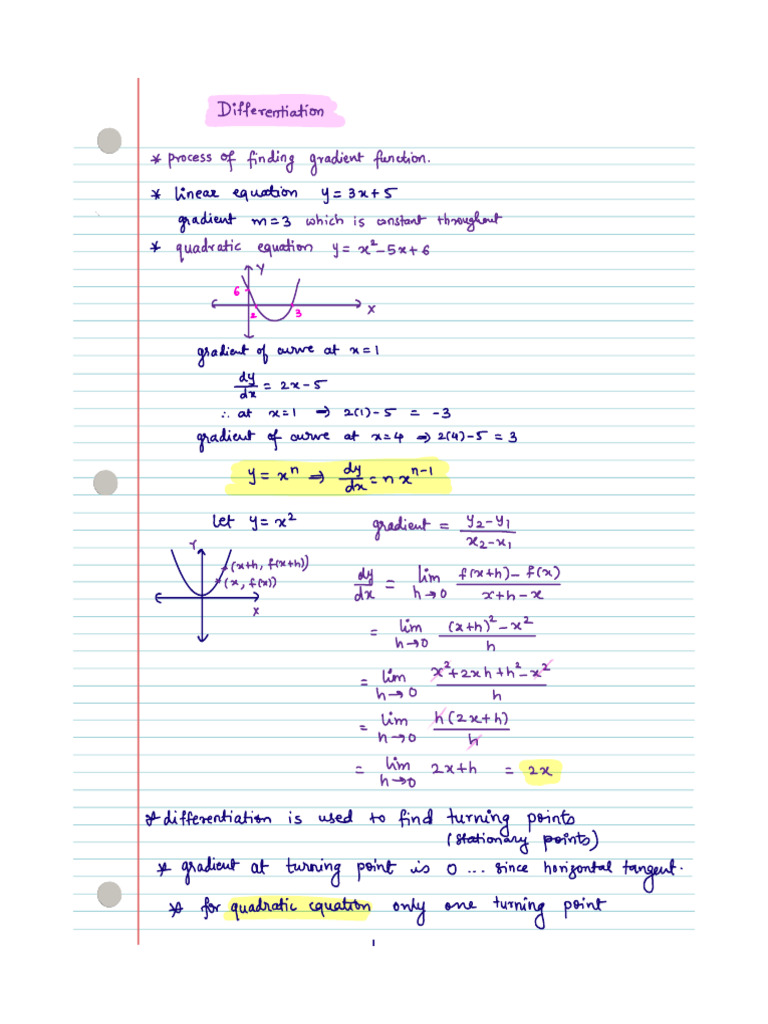 Differentiation
* process of finding gradient function.
* linear equation y = 3x + 5
gradient m = 3 which is constant throughout
* quadratic equation y = x² - 5x + 6
Y
6
2 3
X
gradient of curve at x = 1
dy/dx = 2x - 5
∴ at x = 1 ⇒ 2(1) - 5 = -3
gradient of curve at x = 4 ⇒ 2(4) - 5 = 3
y = xⁿ ⇒ dy/dx = n xⁿ⁻¹
let y = x² gradient = (y₂ - y₁)/(x₂ - x₁)
Y
(x+h, f(x+h))
(x, f(x))
X
dy/dx = lim h→0 (f(x+h) - f(x))/(x+h-x)
= lim h→0 ((x+h)² - x²)/h
= lim h→0 (x² + 2xh + h² - x²)/h
= lim h→0 h(2x+h)/h
= lim h→0 2x+h = 2x
* differentiation is used to find turning points
(stationary points)
* gradient at turning point is 0 ... since horizontal tangent.
* for quadratic equation only one turning point